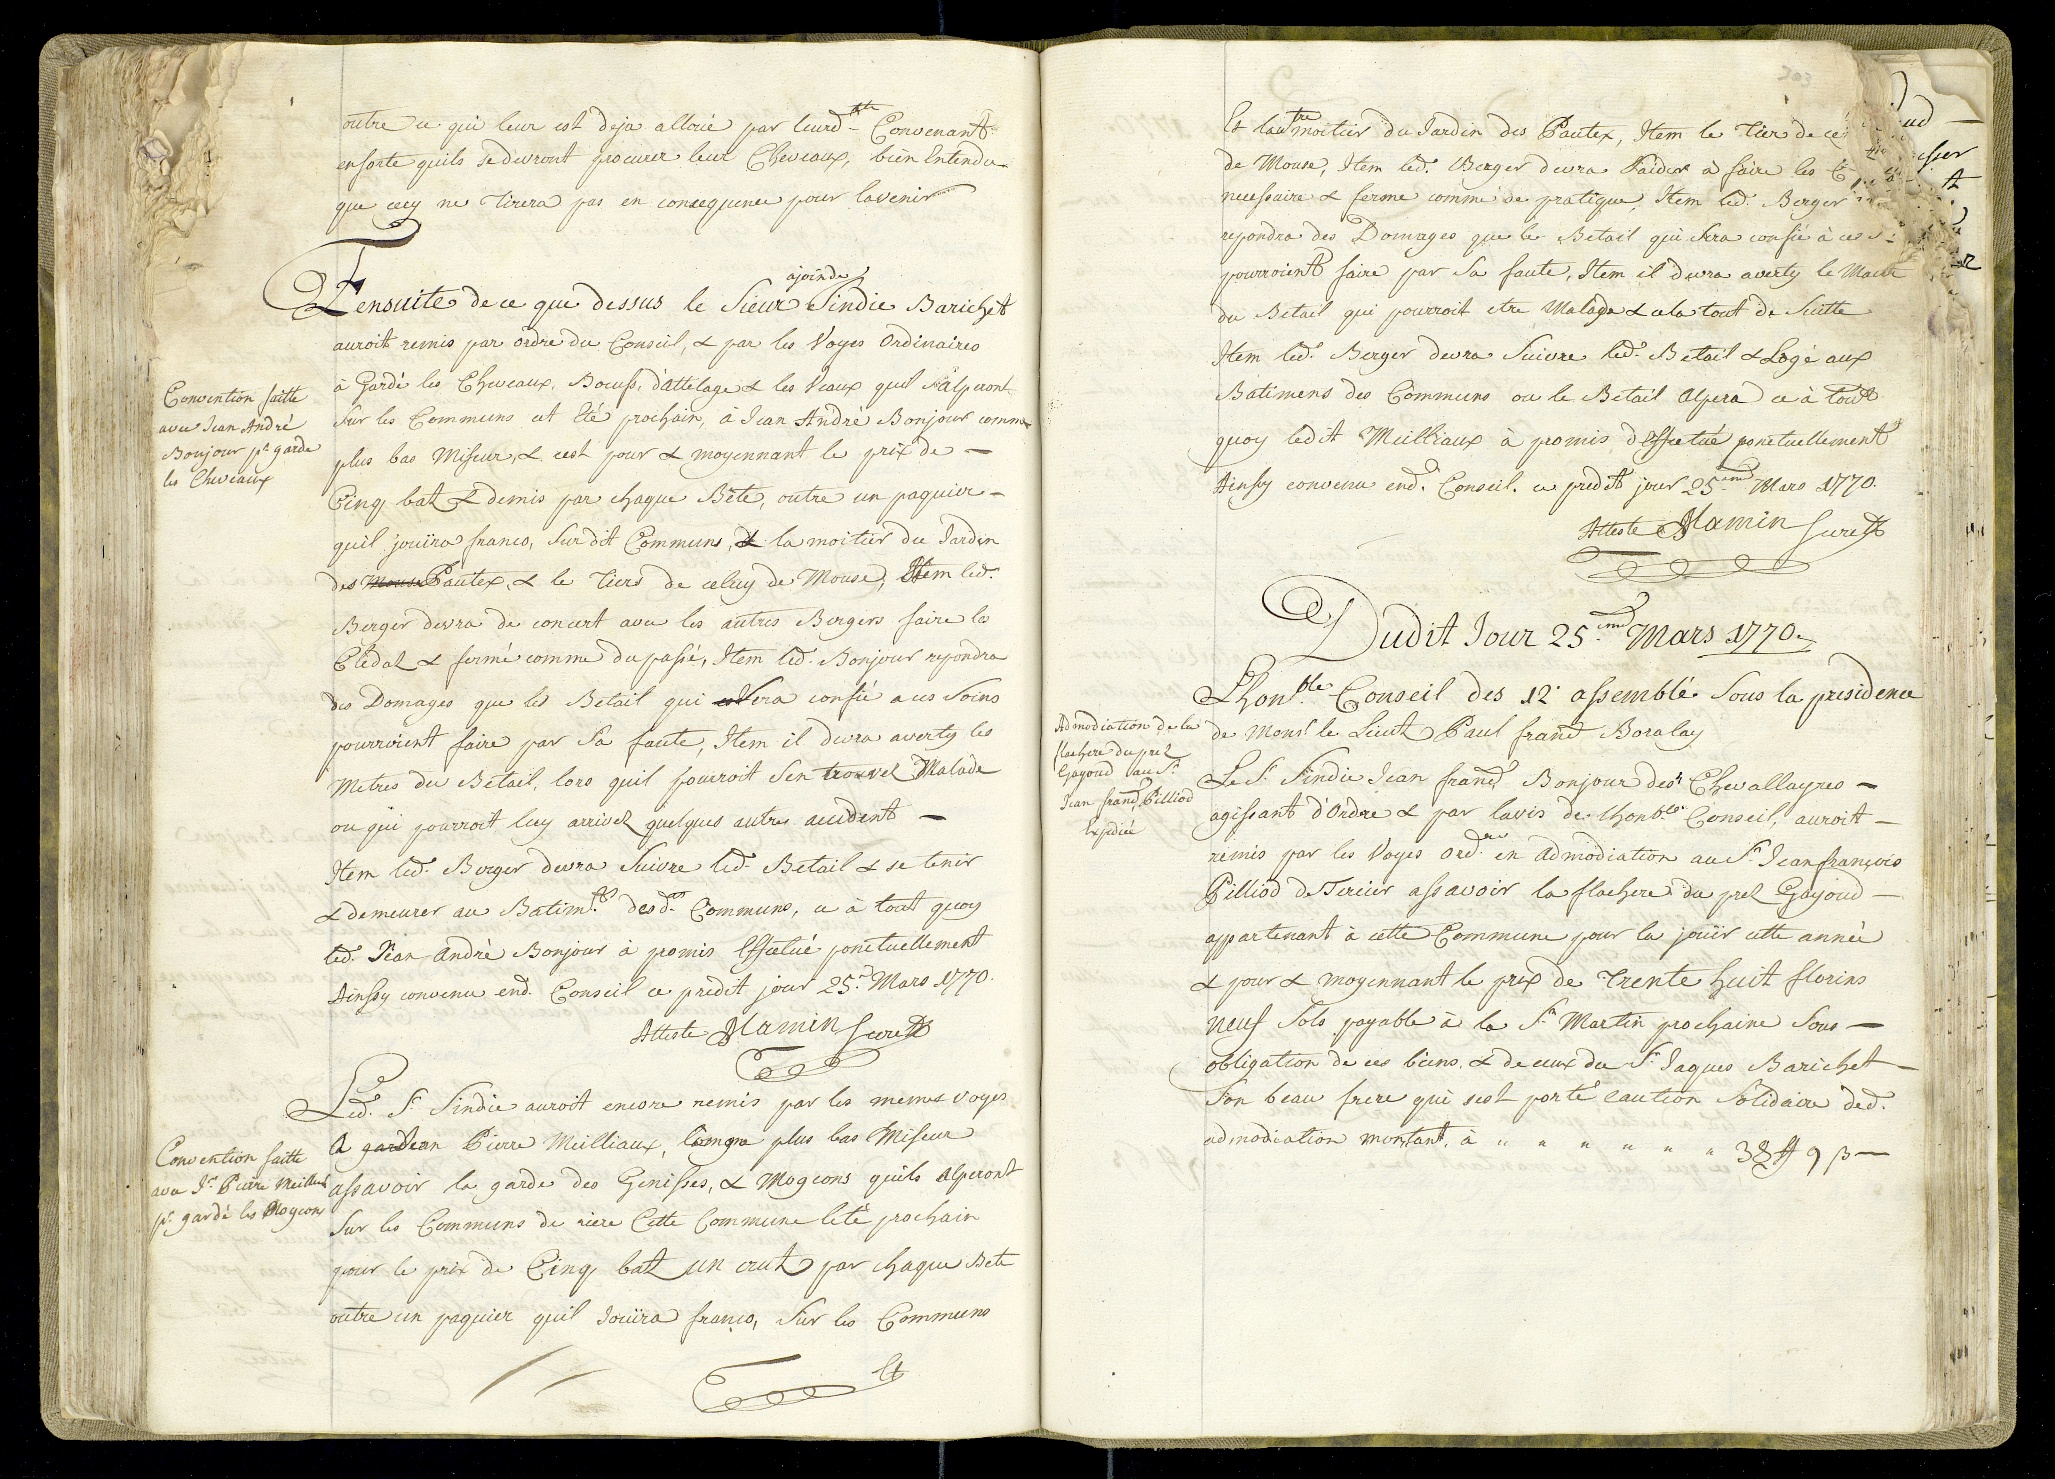 outre ce qui leur est deja alloué par leurd.tte Convenant
ensorte quils se devront procurer leur Cheveaux, bien Entendu
que cecy ne Tirera pas en consequence pour lavenir
ajoinde
Ensuite de ce que dessus le Sieur Sindic Barichet
auroit remis par ordre du Conseil, & par les Voyes Ordinaires
à Gardé les Cheveaux, Boeufs d'attelage & les Veaux quil s'alperont
Sur les Communs cet Eté prochain, à Jean André Bonjour comme
plus bas Miseur, & cest pour & moyennant le prix de —
Cinq batz & demis par chaque Bête, outre un paquier —
quil jouïra franco, Sur dit Communs, & la moitier du Jardin
des Mouse Pautex, & le Tiers de celuy de Mouse, Item led.
Berger devra de concert avec les autres Bergers faire la
Clédaz & fermé comme du passé, Item led. Bonjour repondra
des Domages que le Betail qui sera confié a ces Soins
pourroient faire par Sa faute, Item il devra averty les
Metres du Betail, lors quil pourroit Sen trouver Malade
ou qui pourroit luy arriver quelques autres accident —
Item led. Berger devra Suivre led. Betail & se tenir
& demeurer au Batim.ts desd.ts Communs, ce à tout quoy
led. Jean André Bonjour à promis Effectué ponctuellement
Ainssy convenu end. Conseil ce predit jour 25.e Mars 1770.
Atteste Mamin Secret.
Convention faitte
avec Jean André
Bonjour p.r garde
les Cheveaux
Led. S.r Sindic auroit encore remis par les memes voyes
à Jean Pierre Meilliaux, comme plus bas Miseur
assavoir la garde des Genisses, & Mogeons quils Alperont
Sur les Communs de riere Cette Commune lété prochain
pour le prix de Cinq batz un crutz par chaque Bete
outre un paquier quil Jouïra franco, Sur les Communs
Et
Convention faitte
avec J.n Pierre Meilliaux
p.r gardé les Mogeons
Et lautre moitier du Jardin des Pautex, Item le Tier de ce
de Mouse, Item led. Berger devra l'aider à faire les
necessaire & ferme comme de pratique, Item led. Berger
repondra des Domages que le Betail qui Sera confié à ces
pourroient faire par Sa faute, Item il devra averty le Maitr
du Betail qui pourroit etre Malade & cela tout de Suitte
Item led. Berger devra Suivre led. Betail & Logé aux
Batimens des Communs ou le Betail Alpera ce à tout
quoy ledit Meilliaux à promis d'Effectué ponctuellement
Ainssy convenu end. Conseil. ce predit jour 25.eme Mars 1770.
Atteste Mamin Secret.
Dudit Jour 25.eme Mars 1770.
Lhon.ble Conseil des 12. assemblé Sous la presidence
de Mons.r le Lieut Paul franc Boralay
Le S.r Sindic Jean franc Bonjour des Chevallayres —
agissant d'Ordre & par lavis de lhon.ble Conseil, auroit —
remis par les Voyes ord.res en Admodiation au S.r Jean françois
Pilliod de Tercier assavoir la flachere du prez Gayoud —
appartenant à cette Commune pour la jouïr cette année
& pour & moyennant le prix de Trente huit florins
neuf Sols payable à la S.t Martin prochaine Sous —
obligation de ces biens, & de ceux du S.r Jaques Barichet —
Son beau frere qui sest porté caution Solidaire ded.
admodiation montant, à " " " " " " 38 ff 9 ß —
Admodiation de la
flachere du prez
Gayoud au S.r
Jean franc Pilliod
Expedié